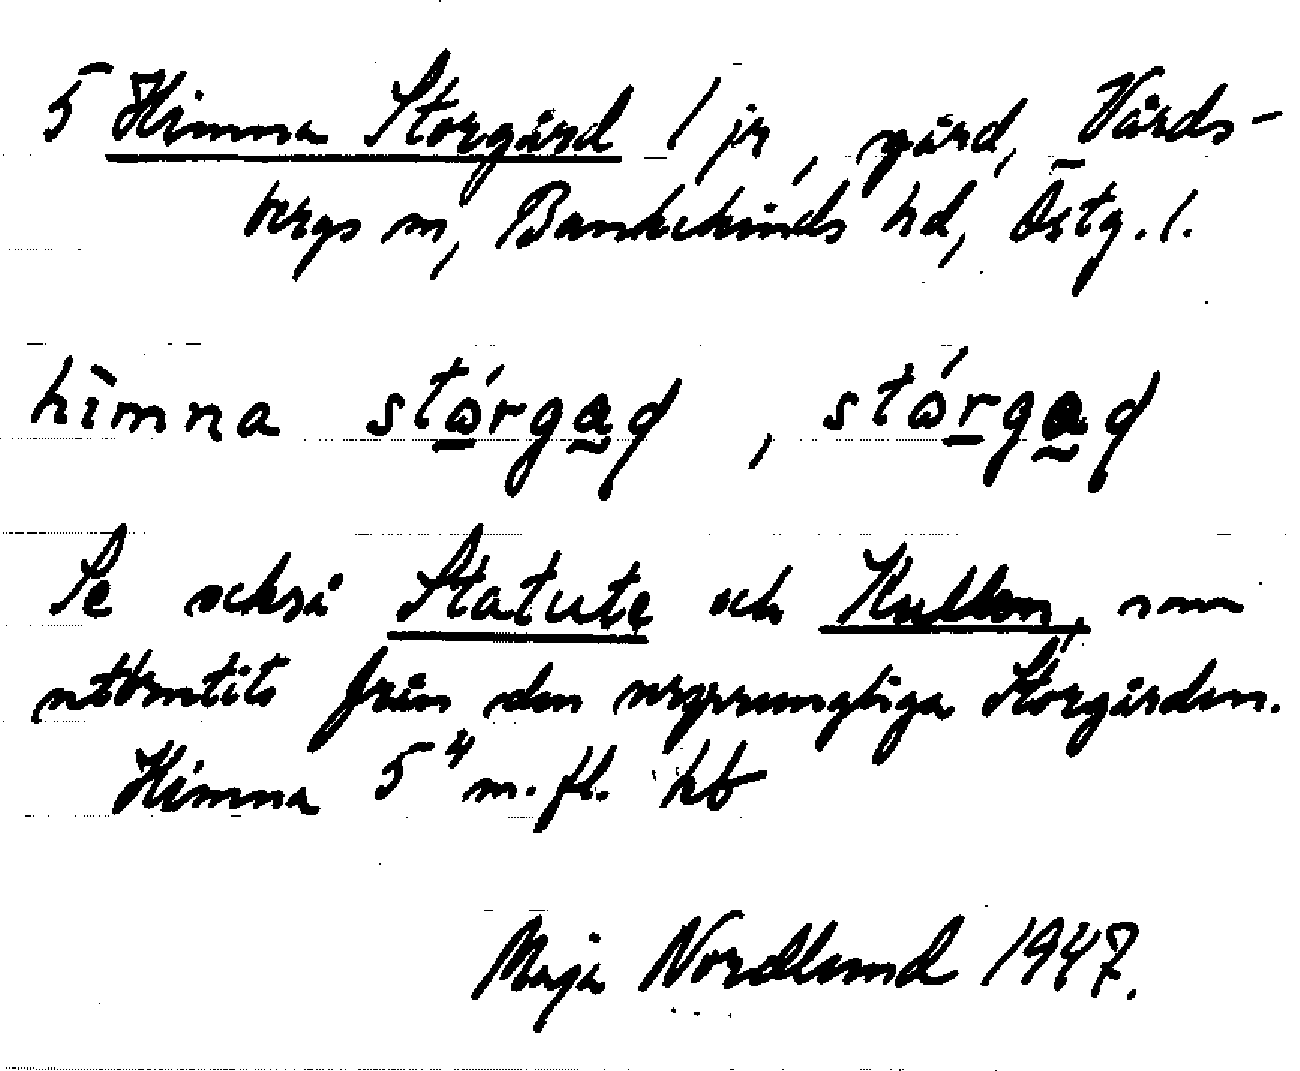 5 Himna Storgård 1 jr, gård, Vårds-
bergs sn, Bankekinds hd, Östg. l.
hìmna stórgad, stórgad
Se också Statute och Kullen, som
utbrutits från den ursprungliga Storgården.
Himna 5⁴ m. fl. hb
Maja Nordlund 1947.